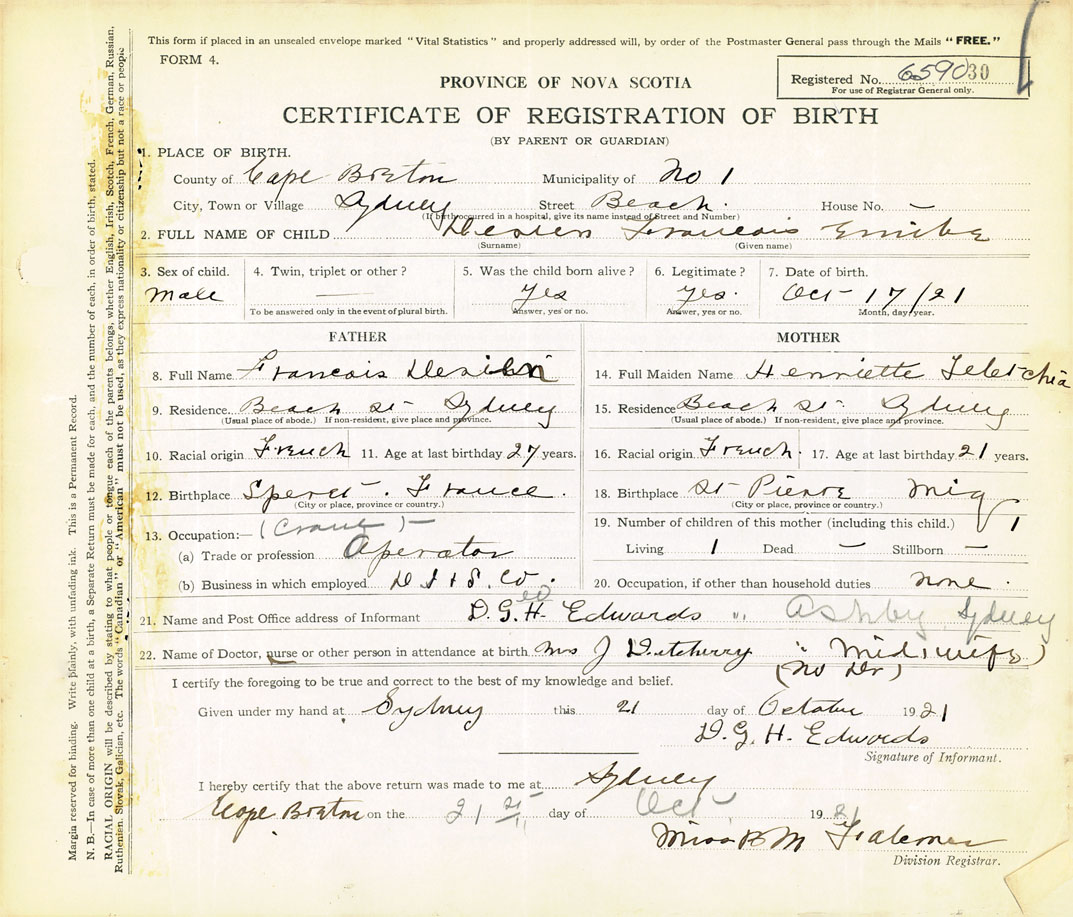 This form if placed in an unsealed envelope marked "Vital Statistics" and properly addressed will, by order of the Postmaster General pass through the Mails "FREE."
FORM 4.
Registered No. 659030
For use of Registrar General only.
PROVINCE OF NOVA SCOTIA
CERTIFICATE OF REGISTRATION OF BIRTH
(BY PARENT OR GUARDIAN)
1. PLACE OF BIRTH.
County of Cape Breton Municipality of No 1
City, Town or Village Sydney Street Beach. House No. —
(If birth occurred in a hospital, give its name instead of Street and Number)
2. FULL NAME OF CHILD Francois
(Surname) (Given name)
3. Sex of child. 4. Twin, triplet or other? 5. Was the child born alive? 6. Legitimate? 7. Date of birth.
Male — Yes Yes. Oct 17/21
To be answered only in the event of plural birth. Answer, yes or no. Answer, yes or no. Month, day, year.
FATHER MOTHER
8. Full Name Francois 14. Full Maiden Name Henriette
9. Residence Beach St Sydney 15. Residence Beach St Sydney
(Usual place of abode.) If non-resident, give place and province. (Usual place of abode.) If non-resident, give place and province.
10. Racial origin French 11. Age at last birthday 27 years. 16. Racial origin French. 17. Age at last birthday 21 years.
12. Birthplace France. 18. Birthplace St Pierre Miq
(City or place, province or country.) (City or place, province or country.)
13. Occupation:— (Crane) — 19. Number of children of this mother (including this child.) 1
(a) Trade or profession Operator Living 1 Dead — Stillborn —
(b) Business in which employed D I & S. Co. 20. Occupation, if other than household duties none.
21. Name and Post Office address of Informant D. G. H. Edwards " Ashby, Sydney
22. Name of Doctor, nurse or other person in attendance at birth Mrs J " Midwife)
(No Dr)
I certify the foregoing to be true and correct to the best of my knowledge and belief.
Given under my hand at Sydney this 21 day of October 1921
D. G. H. Edwards
Signature of Informant.
I hereby certify that the above return was made to me at Sydney
Cape Breton on the 21 st day of Oct 1921
Miss B M Falconer
Division Registrar.
Margin reserved for binding. Write plainly, with unfading ink. This is a Permanent Record.
N. B.—In case of more than one child at a birth, a Separate Return must be made for each, and the number of each, in order of birth, stated.
RACIAL ORIGIN will be described by stating to what people or tongue each of the parents belongs, whether English, Irish, Scotch, French, German, Russian,
Ruthenian, Slovak, Galician, etc. The words "Canadian" or "American" must not be used, as they express nationality or citizenship but not a race or people